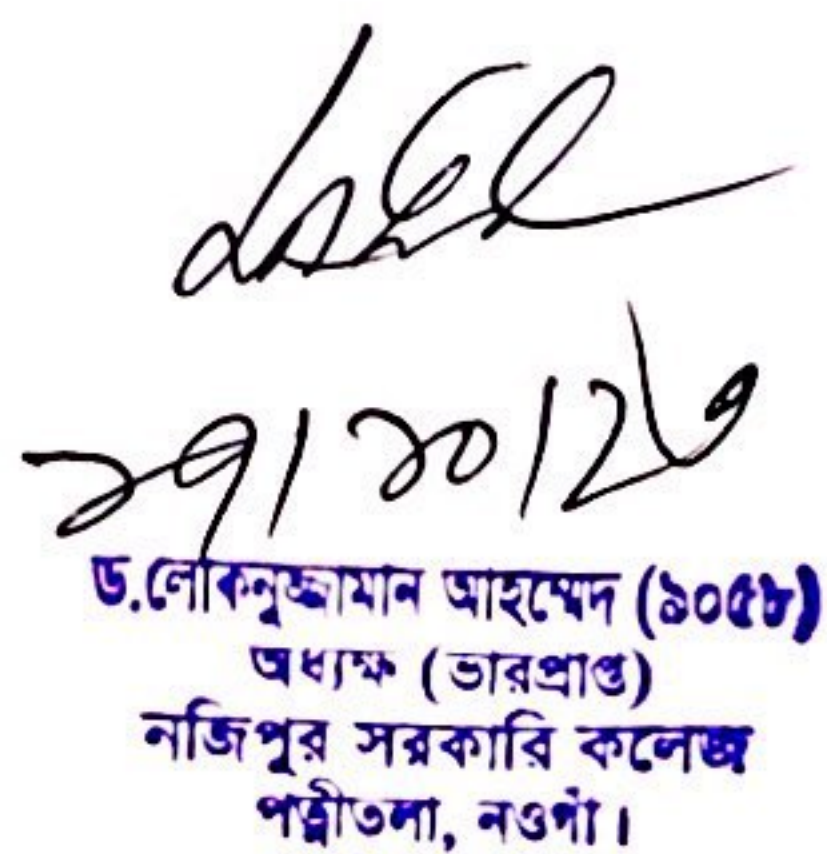 ২৭/১০/২৫
ড.লোকনুজ্জামান আহম্মেদ (৯০৫৮)
অধ্যক্ষ (ভারপ্রাপ্ত)
নজিপুর সরকারি কলেজ
পত্নীতলা, নওগাঁ।